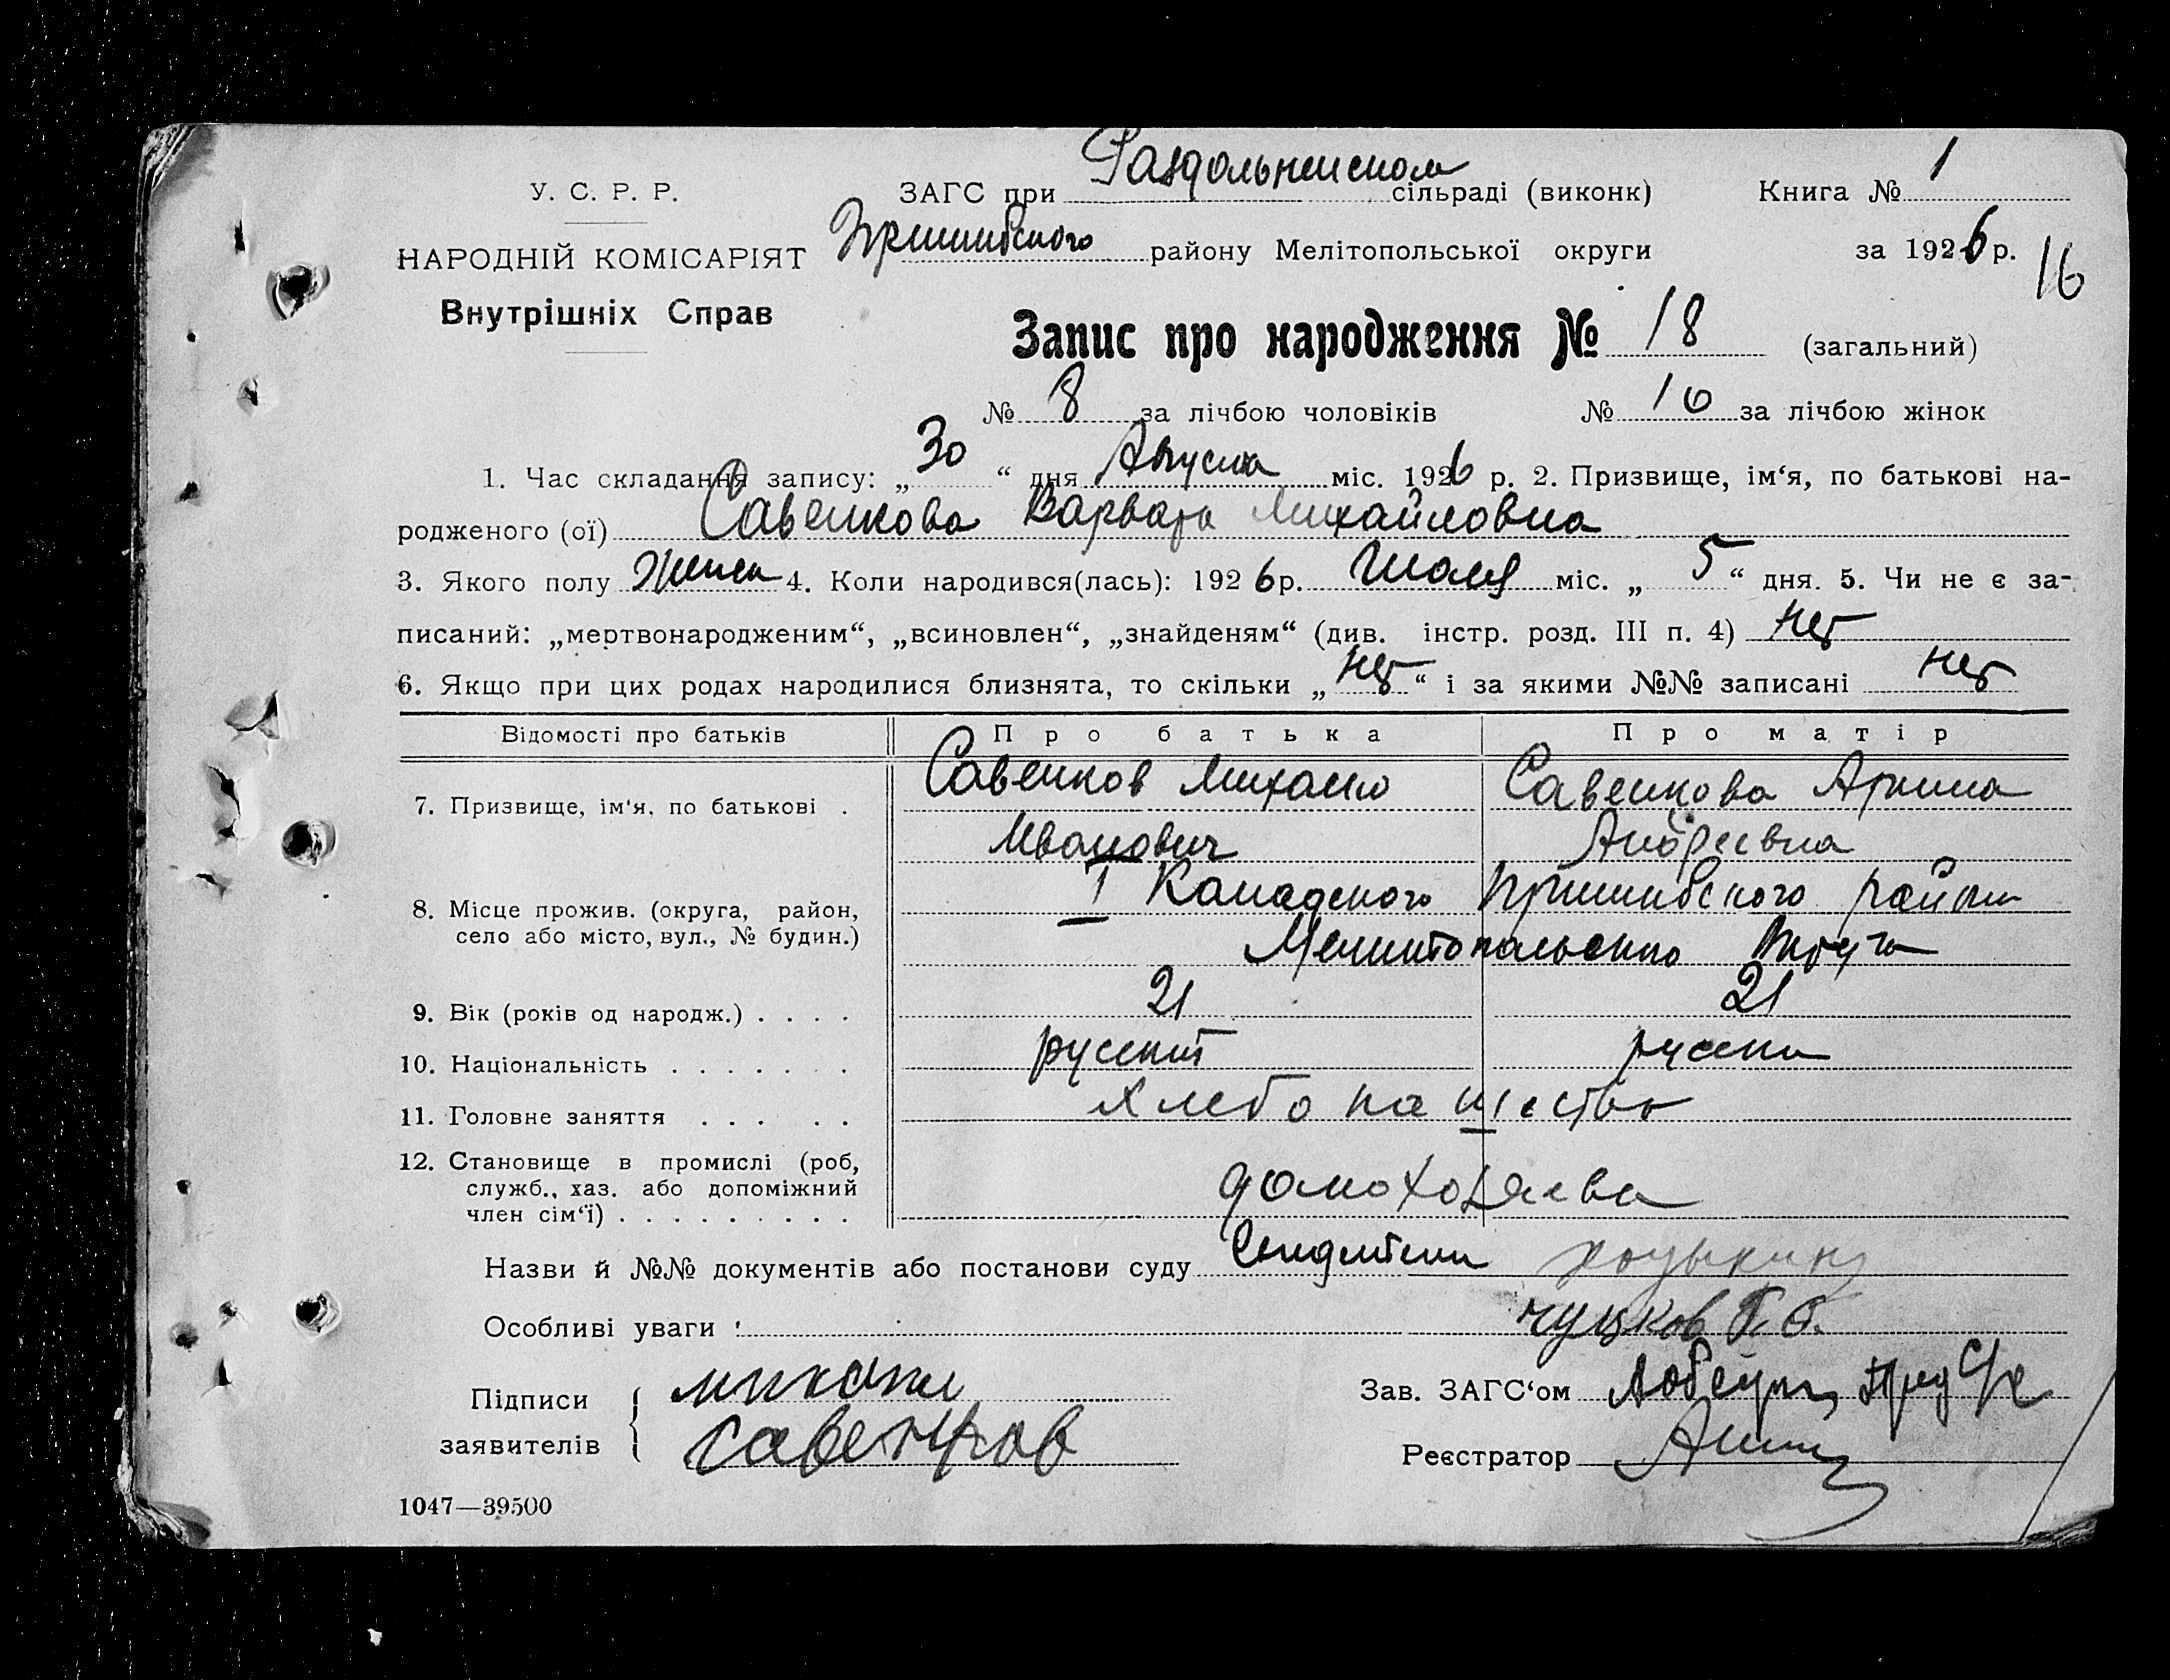 У. С. Р. Р. ЗАГС при Раздольненском сільраді (виконк) Книга № 1
НАРОДНІЙ КОМІСАРІЯТ Пришибского району Мелітопольської округи за 1926 р. 16
Внутрішніх Справ
Запис про народження № 18 (загальний)
№ 8 за лічбою чоловіків № 10 за лічбою жінок
1. Час складання запису: „ 30 “ дня Августа міс. 1926 р. 2. Призвище, ім‘я, по батькові на-
родженого (ої) Савенкова Варвара Михайловна
3. Якого полу Женск 4. Коли народився(лась): 1926 р. Июля міс. „ 5 “ дня. 5. Чи не є за-
писаний: „мертвонародженим“, „всиновлен“, „знайденям“ (див. інстр. розд. III п. 4) нет
6. Якщо при цих родах народилися близнята, то скільки „ нет “ і за якими №№ записані нет
Відомості про батьків Про батька Про матір
7. Призвище, ім'я, по батькові . Савенков Михаил Савенкова Арина
Иванович Андреевна
8. Місце прожив. (округа, район, I Канадского Пришибского район
село або місто, вул., № будин.) Мелитопольского Округа
9. Вік (років од народж.) . . . . 21 21
10. Національність . . . . . . . русский русская
11. Головне заняття . . . . . хлебопашество
12. Становище в промислі (роб,
служб., хаз. або допоміжний домохозяева
член сім‘ї) . . . . . . . . .
Назви й №№ документів або постанови суду
Особливі уваги
Підписи михаил Зав. ЗАГС‘ом
заявителів савенков Реєстратор
1047—39500